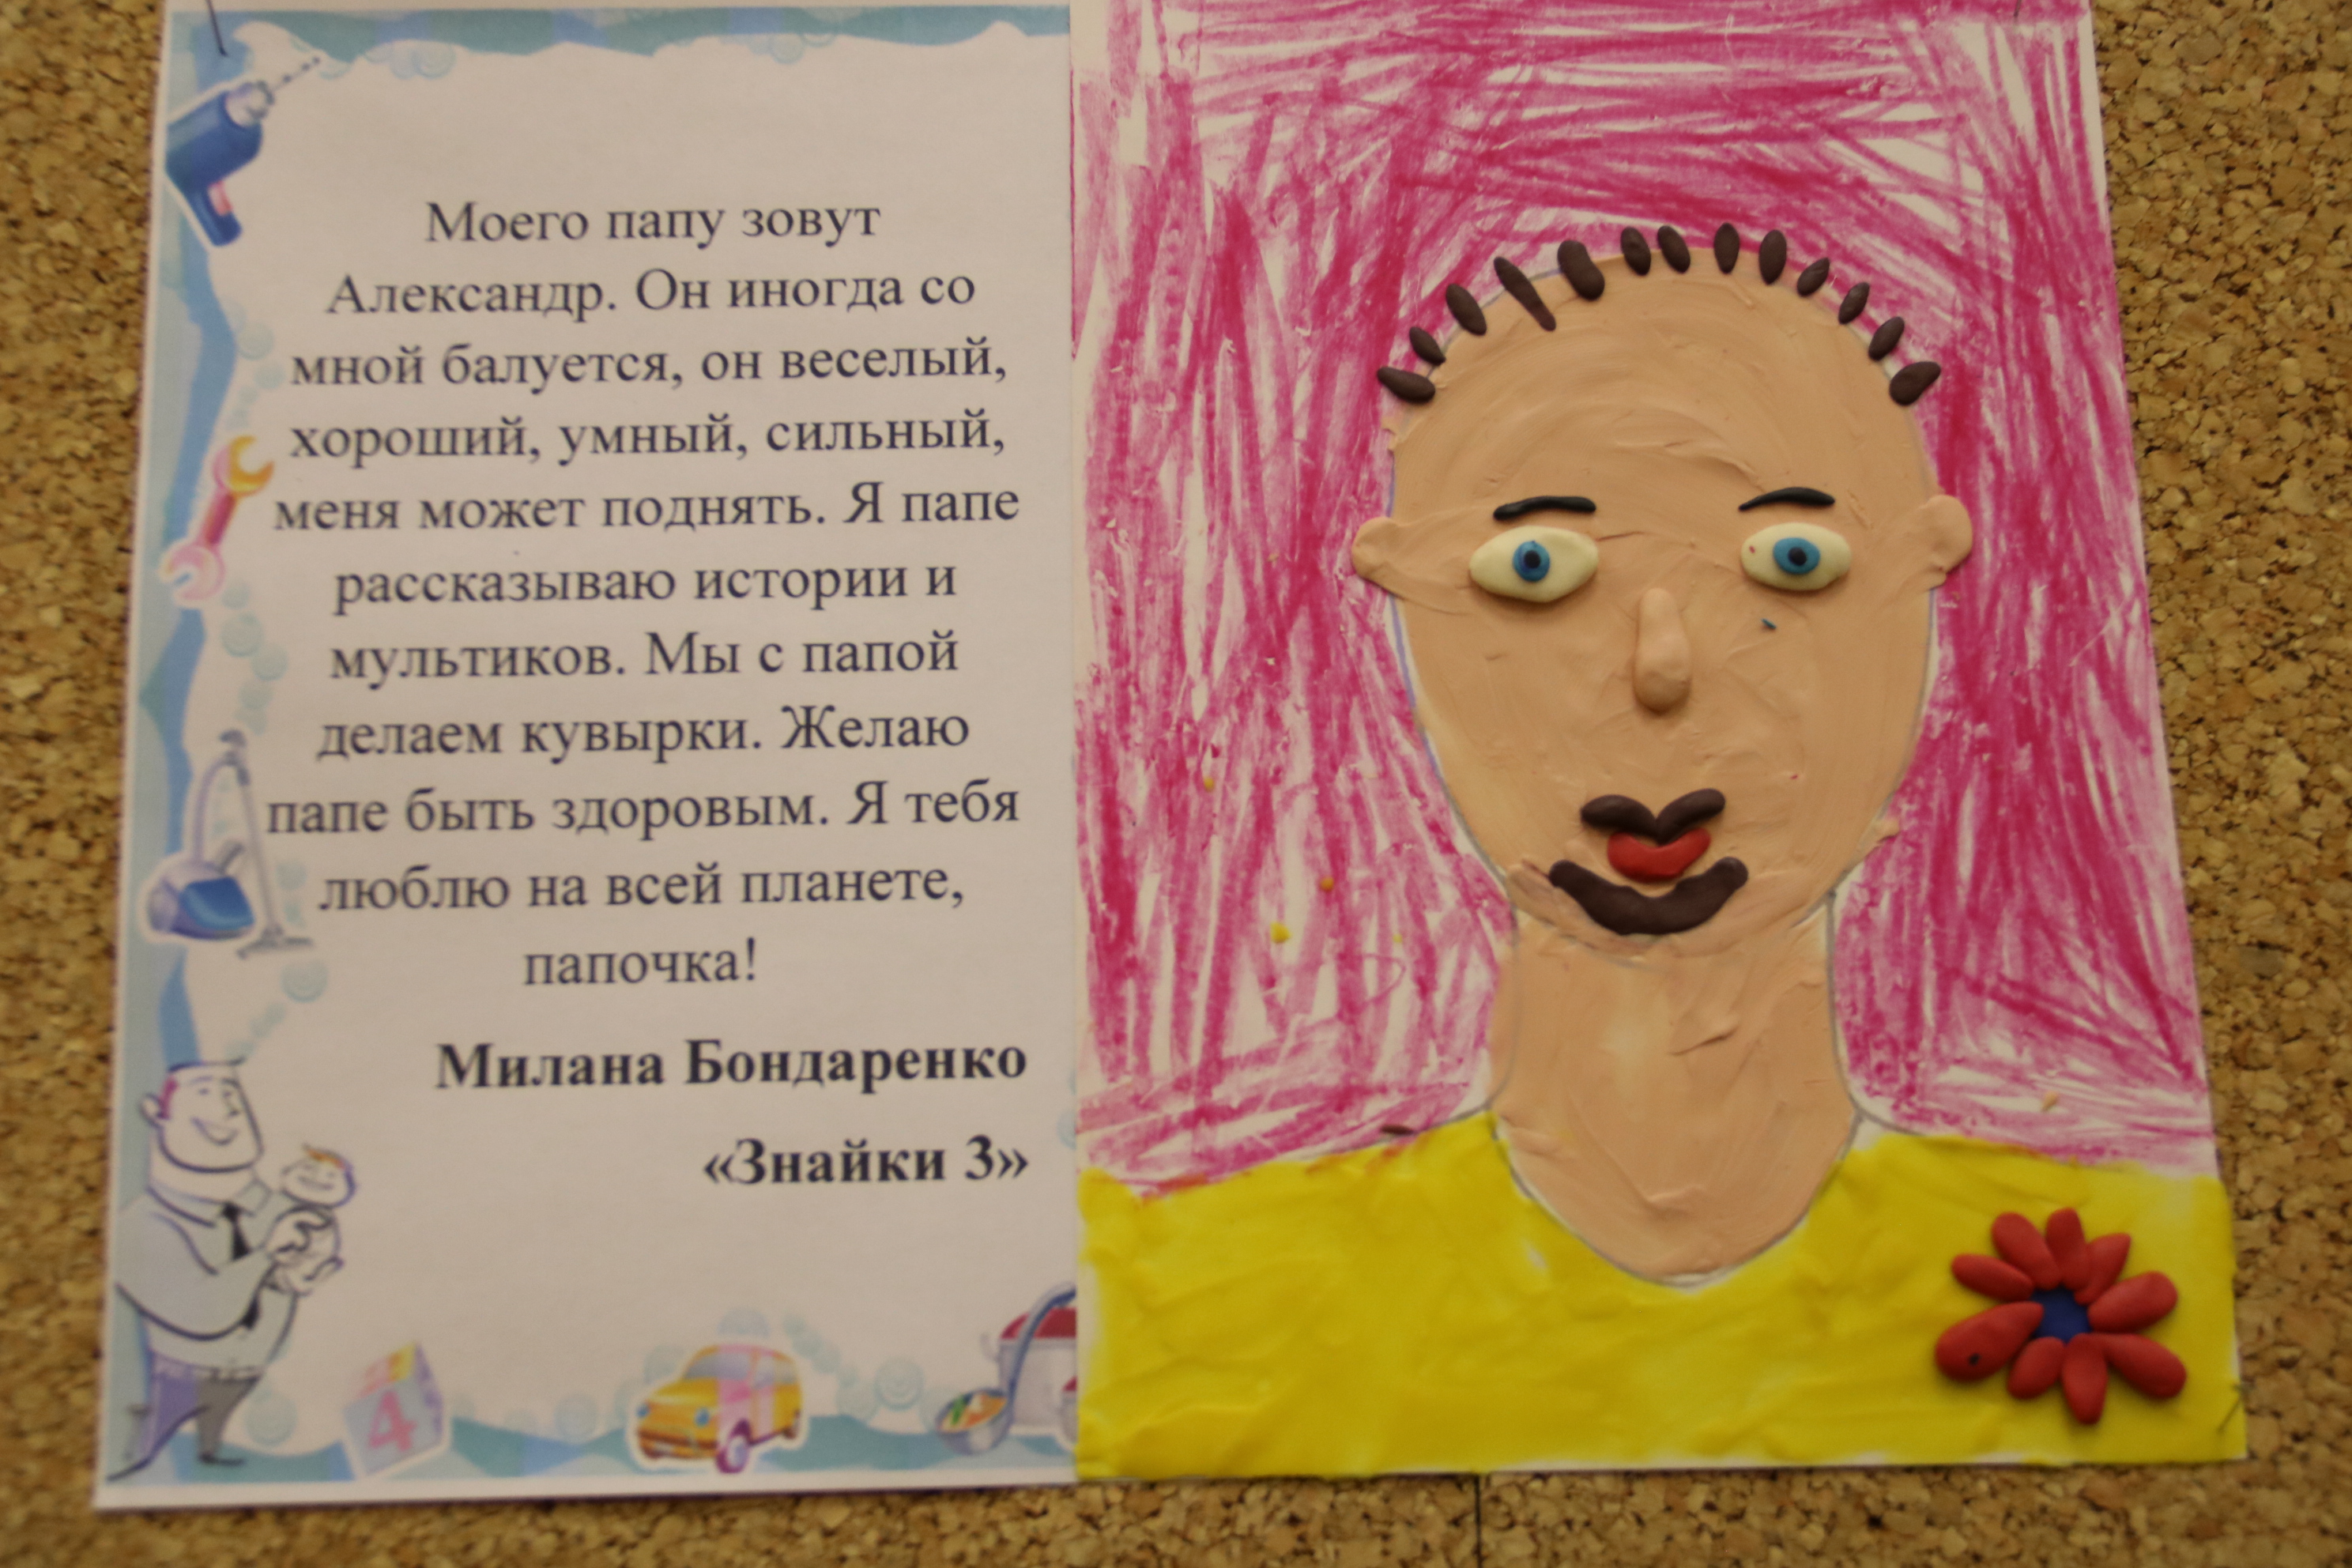 Моего папу зовут
Александр. Он иногда со
мной балуется, он веселый,
хороший, умный, сильный,
меня может поднять. Я папе
рассказываю истории и
мультиков. Мы с папой
делаем кувырки. Желаю
папе быть здоровым. Я тебя
люблю на всей планете,
папочка!
Милана Бондаренко
«Знайки 3»
4